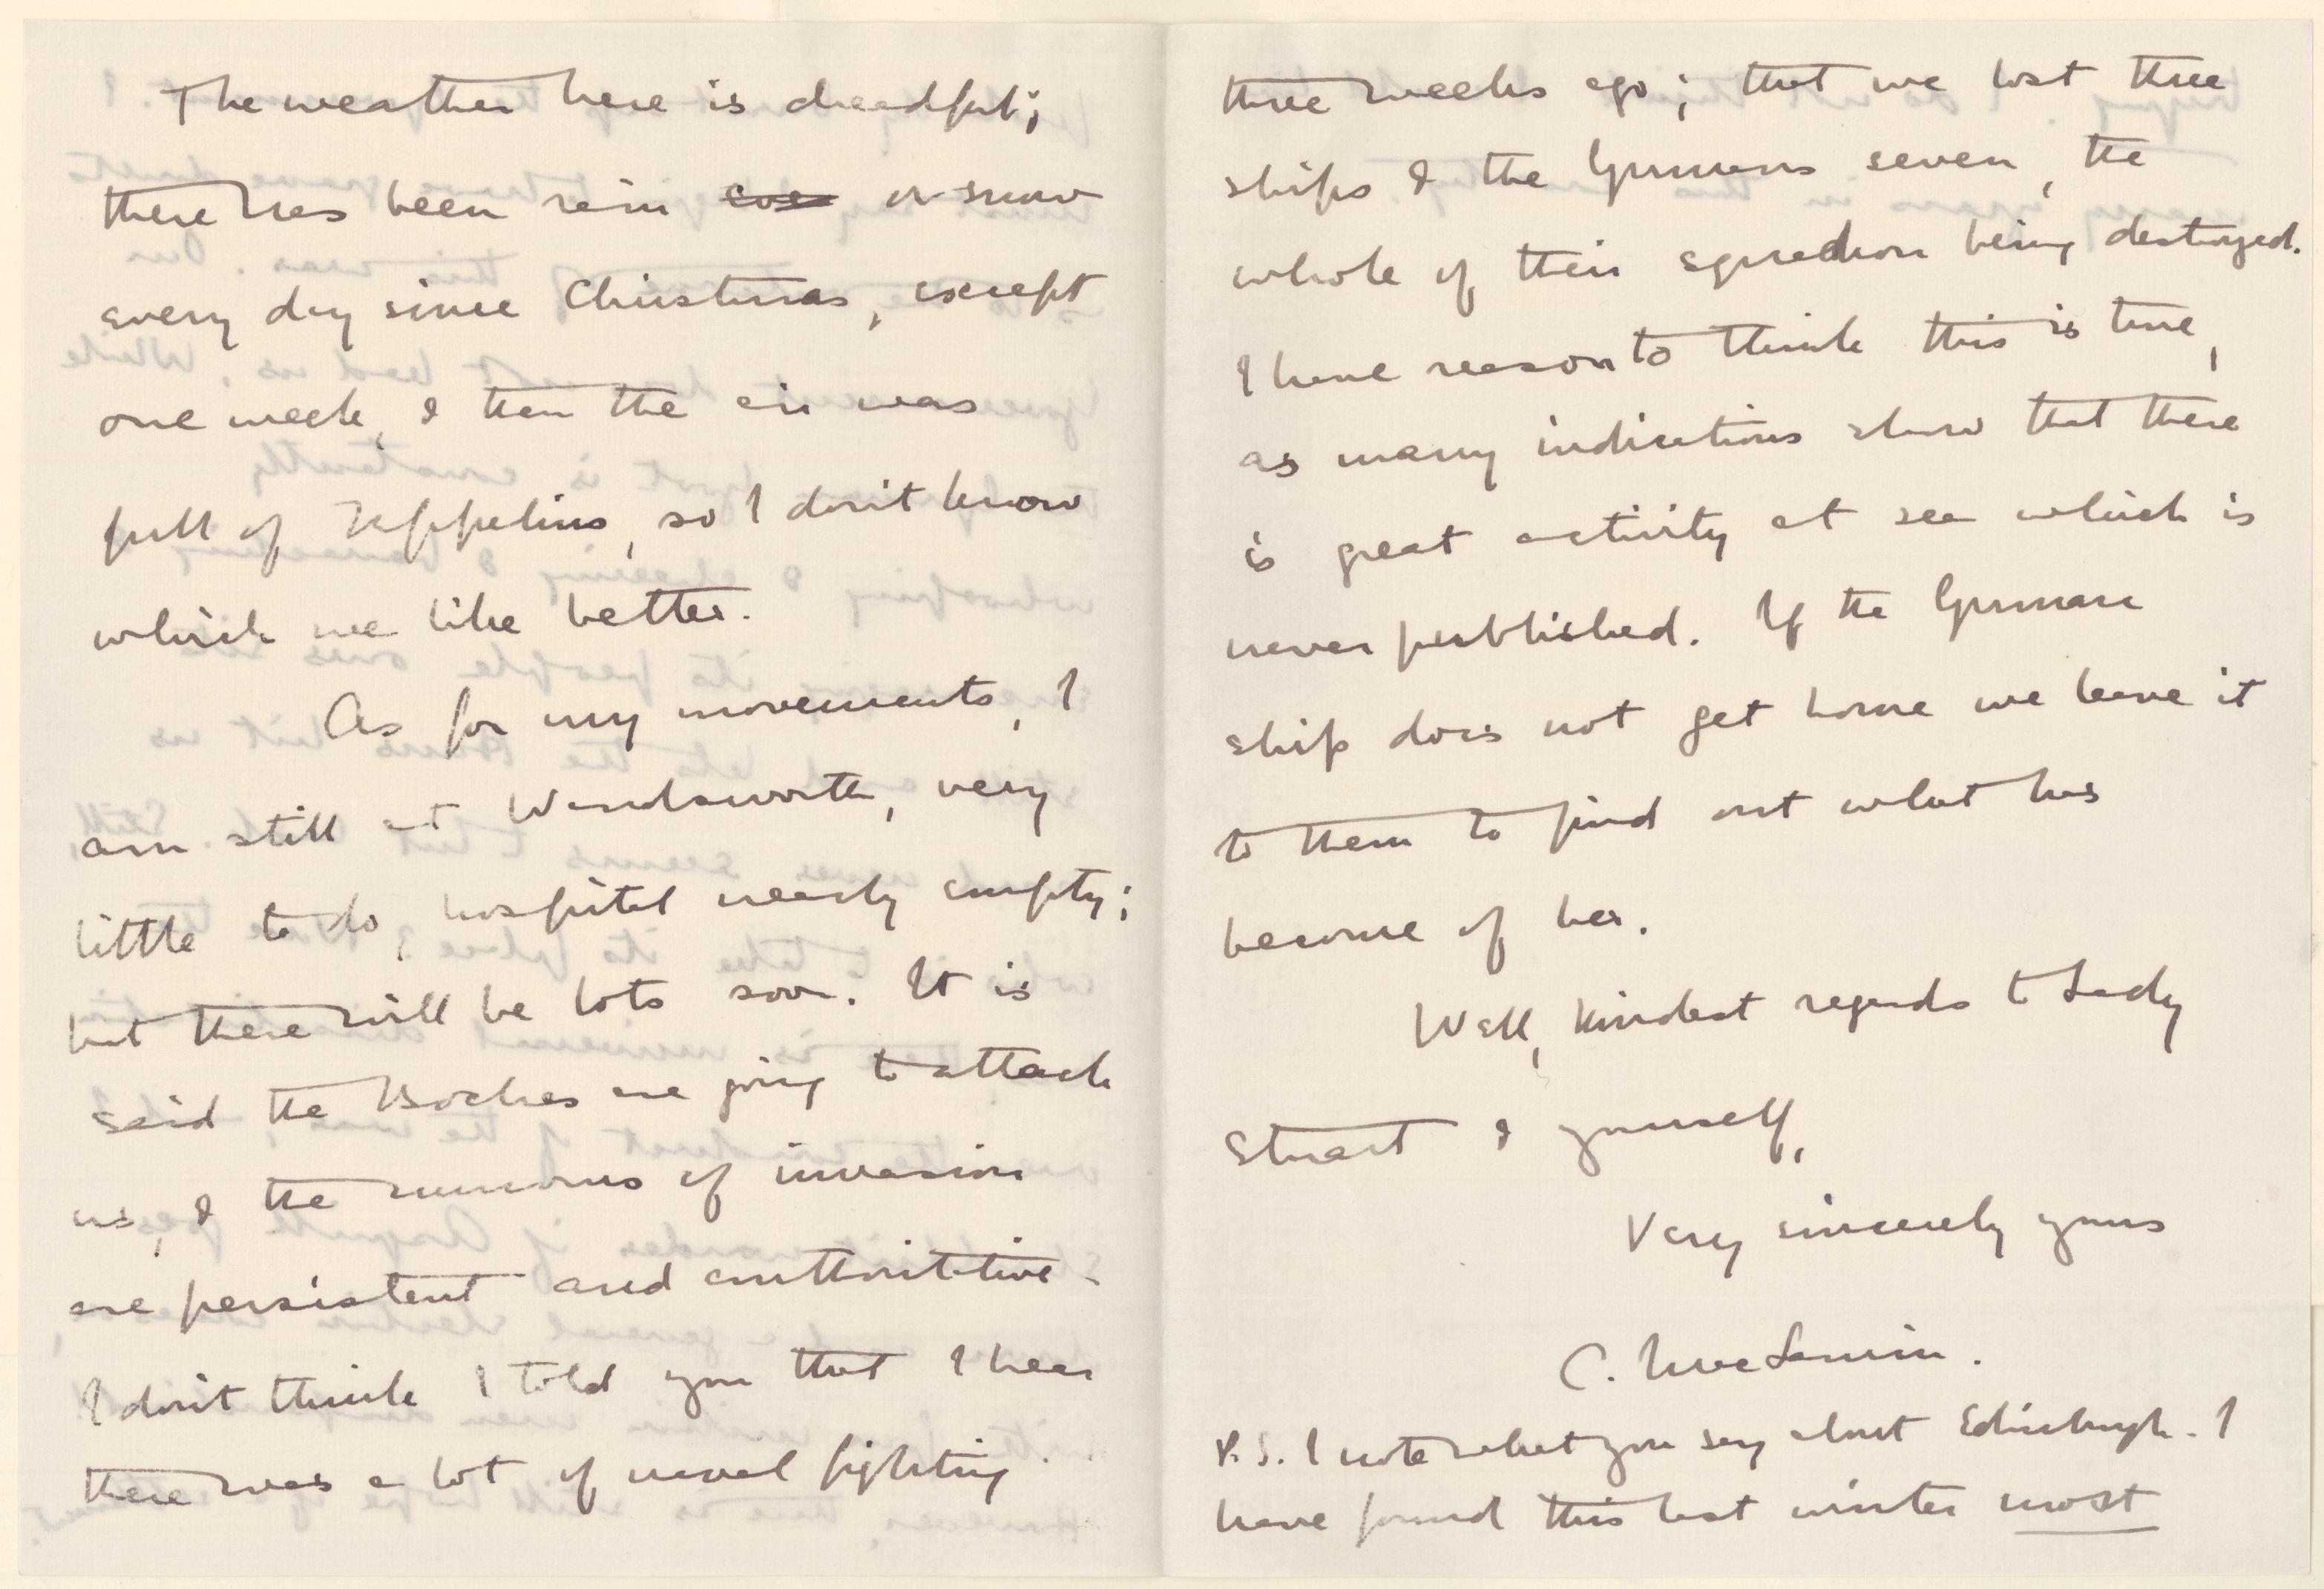 The weather here is dreadful;
there has been rain or snow
every day since Christmas, except
one week, & then the air was
full of Zeppelins, so I don't know
which we like better.
As for my movements, I
am still at Wandsworth, very
little to do, hospital nearly empty;
but there will be lots soon. It is
said the Boches are going to attack
us, & the rumours of invasion
are persistent and authoritative.
I don't think I told you that I hear
there was a lot of naval fighting
three weeks ago; that we lost three
ships & the Germans seven, the
whole of their squadron being destroyed.
I have reason to think this is true,
as many indications show that there
is great activity at sea which is
never published. If the German
ship does not get home we leave it
to them to find out what has
become of her.
Well, kindest regards to Lady
Stuart & yourself,
Very sincerely yours
C.
P.S. I note what you say about Edinburgh. I
have found this last winter most